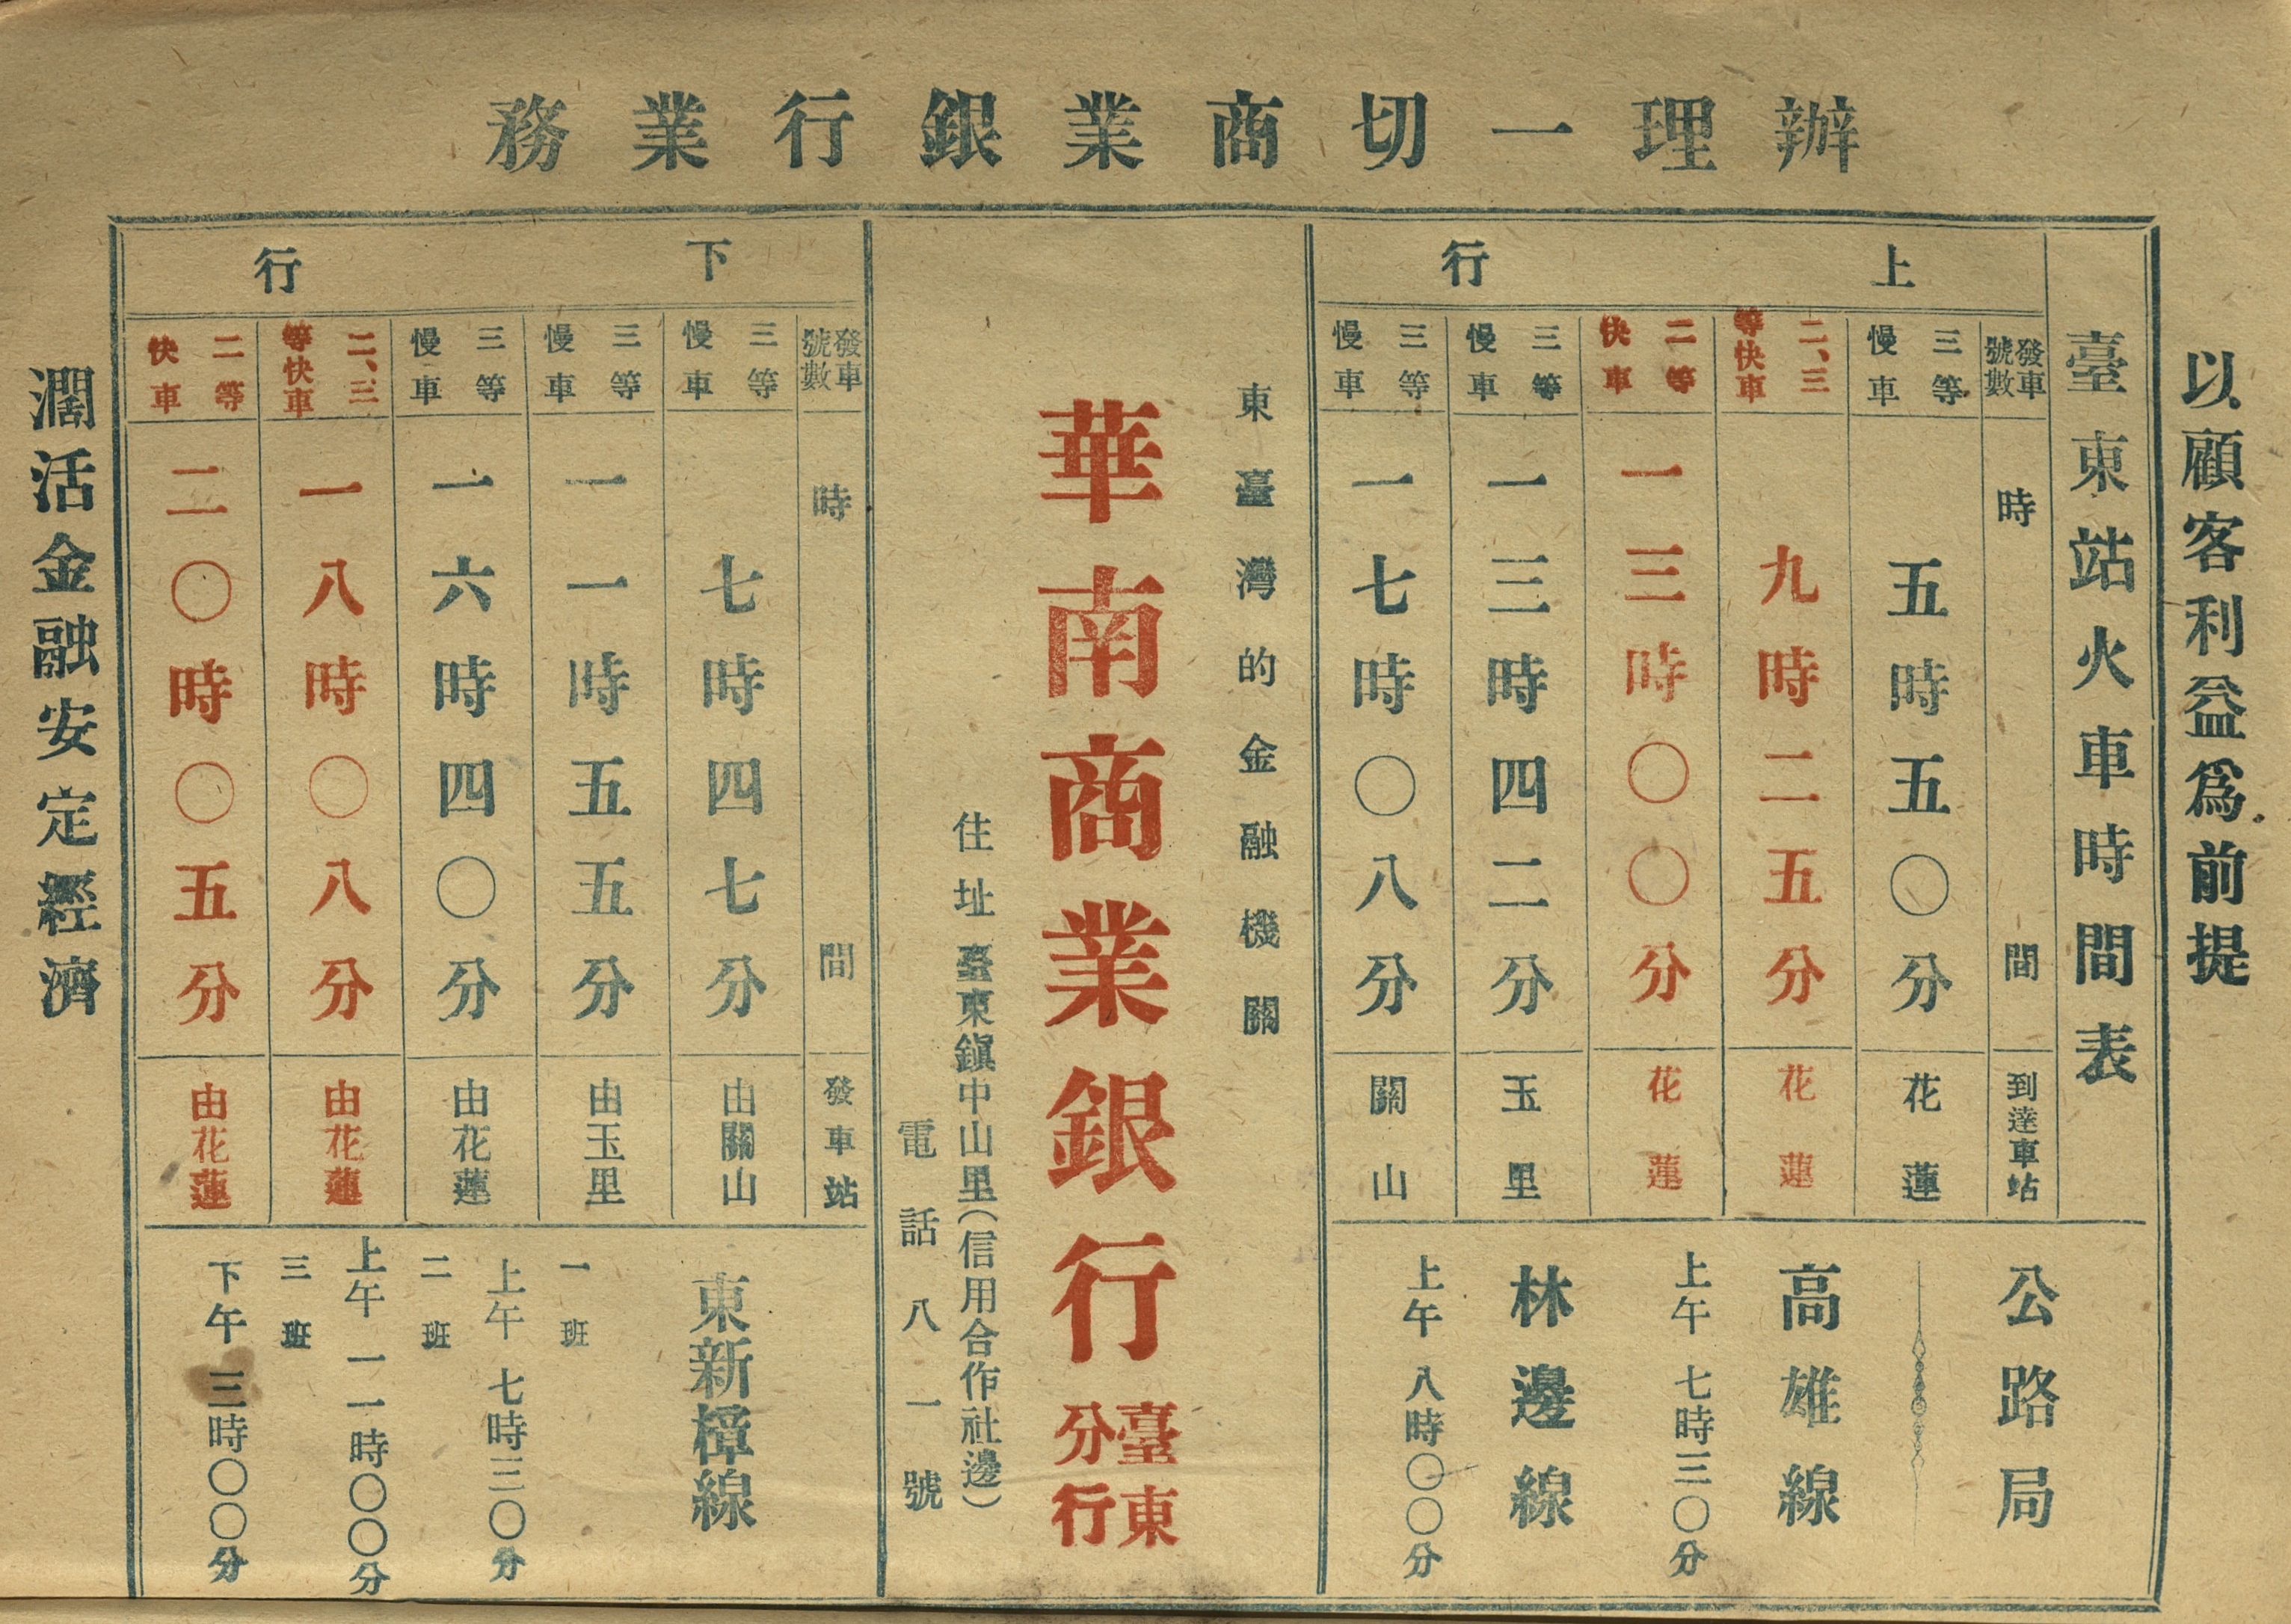 辦理一切商業銀行業務
以顧客利益爲前提
臺東站火車時間表
上行
發車號數 時間 到達車站
三等慢車 五時五〇分 花蓮
二、三等快車 九時二五分 花蓮
二等快車 一三時〇〇分 花蓮
三等慢車 一三時四二分 玉里
三等慢車 一七時〇八分 關山
公路局
高雄線
上午 七時三〇分
林邊線
上午 八時〇〇分
東臺灣的金融機關
華南商業銀行臺東分行
住址 臺東鎭中山里(信用合作社邊)
電話八一號
下行
發車號數 時間 發車站
三等慢車 七時四七分 由關山
三等慢車 一一時五五分 由玉里
三等慢車 一六時四〇分 由花蓮
二、三等快車 一八時〇八分 由花蓮
二等快車 二〇時〇五分 由花蓮
東新樟線
一班
上午 七時三〇分
二班
上午 一一時〇〇分
三班
下午 三時〇〇分
濶活金融安定經濟